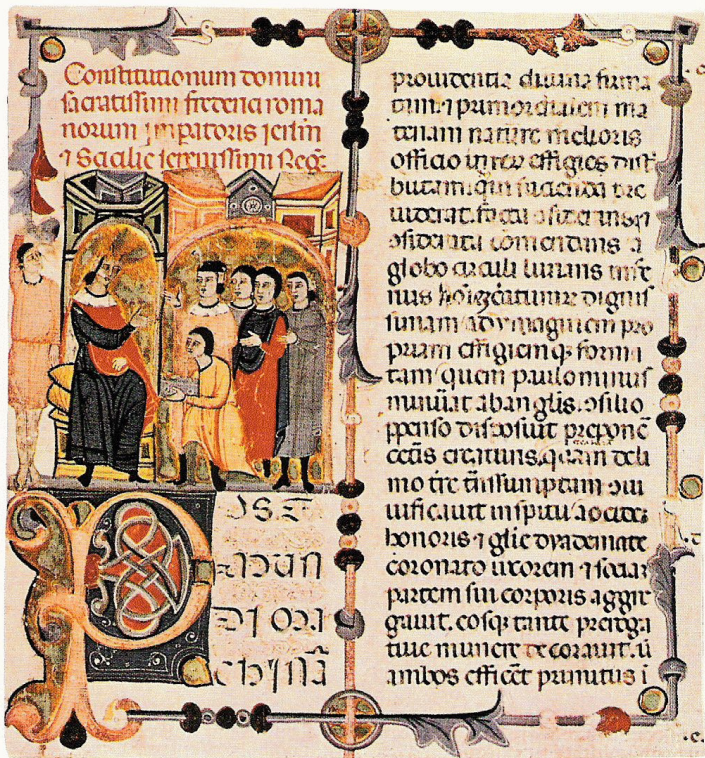 Constitutionum domini
sacratissimi frederici roma
norum imperatoris ierlm
⁊ Sicilie serenissimi Reg
P OST
MUN
DI
MACHINÃ
prouidentia diuina firma
tam ⁊ primordialem ma
teriam nature melioris
officio in rerum effigies distri
butam. qui facienda pre
uiderat. facta
considerata comendans a
globo circuli lunaris infe
rius
simam ad ymaginem pro
priam effigiemq; forma
tam quem paulo minus
minuerat ab anglis. consilio
ppenso disposuit preponẽ
ceteris creaturis. quem de li
mo tre transumptam
uificauit in spiritu ac eidem
honoris ⁊ glie dyademate
coronato uxorem ⁊ sociam
partem sui corporis aggre
gauit. eosq; tante preroga
tiue munere decorauit. ut
ambos efficeret primitus i